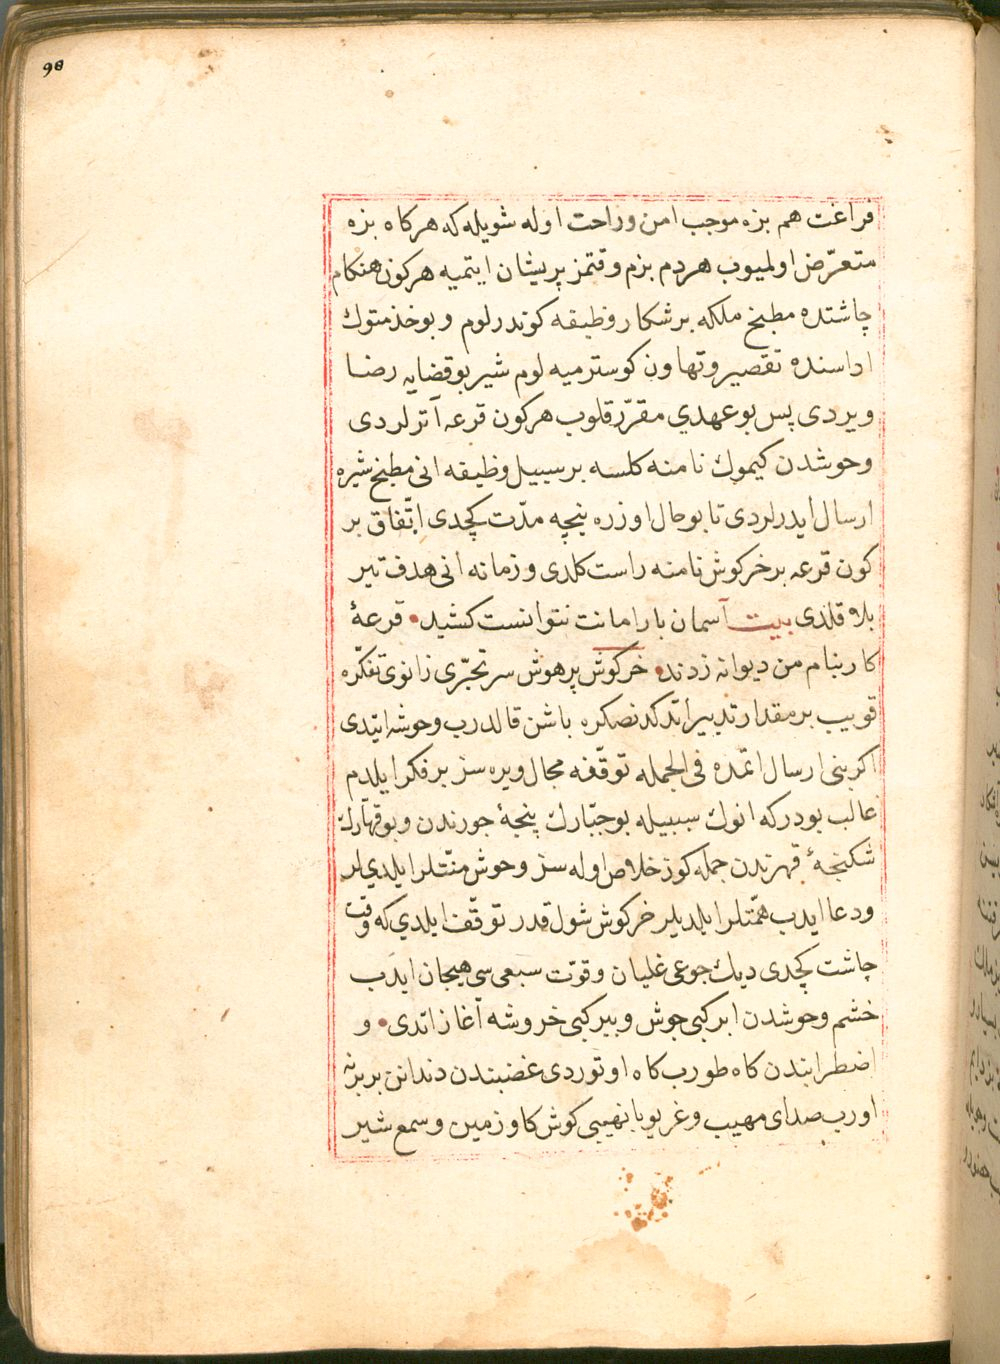 98
فراغت هم بزه موجب امن وراحت اوله شويله كه هركاه بزه
متعرّض اولميوب هردم بزم وقتمز پريشان ايتميه هركون هنكام
چاشتده مطبخ ملكه برشكار وظيفه كوندرلوم و بوخذمتوك
اداسنده تقصير وتهاون كوسترميه لوم شير بوقضايه رضا
ويردى پس بوعهدي مقرّر قلوب هركون قرعه آترلردى
وحوشدن كيموك نامنه كلسه برسبيل وظيفه انى مطبخ شيره
ارسال ايدرلردى تا بوحال اوزره نيچه مدّت كچدى اتّفاق بر
كون قرعه برخركوش نامنه راست كلدى وزمانه انى هدف تير
بلا قلدى بيت آسمان بار امانت نتوانست كشيد قرعهٔ
كار بنام من ديوانه زدند خركوش پرهوش سر تحيّرى زانوى تفكّره
قويب برمقدار تدبير اتدكدنصكره باشن قالدرب وحوشه ايتدى
اكر بنى ارسال اتمده فى الجمله توقّفه مجال ويره سز برفكر ايلدم
غالب بودركه انوك سببيله بوجبّارك پنجهٔ جورندن وبوقهّارك
شكنجهٔ قهرندن جمله كوز خلاص اوله سز وحوش منّتلر ايلديلر
ودعا ايدب همّتلر ايلديلر خركوش شول قدر توقّف ايلدي كه وقت
چاشت كچدى ديك جوعى غليان وقوّت سبعى سى هيجان ايدب
خشم وحوشدن ابر كبى جوش وببر كبى خروشه آغاز اتدى و
اضطرابندن كاه طورب كاه اوتوردى غضبندن دندانن بربرنه
اورب صداى مهيب وغريو با نهيبى كوش كاو زمين وسمع شير